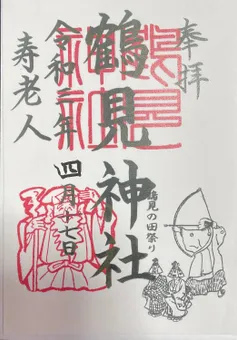 奉拝
鶴見神社
鶴見の田祭り
令和三年
四月十七日
寿老人